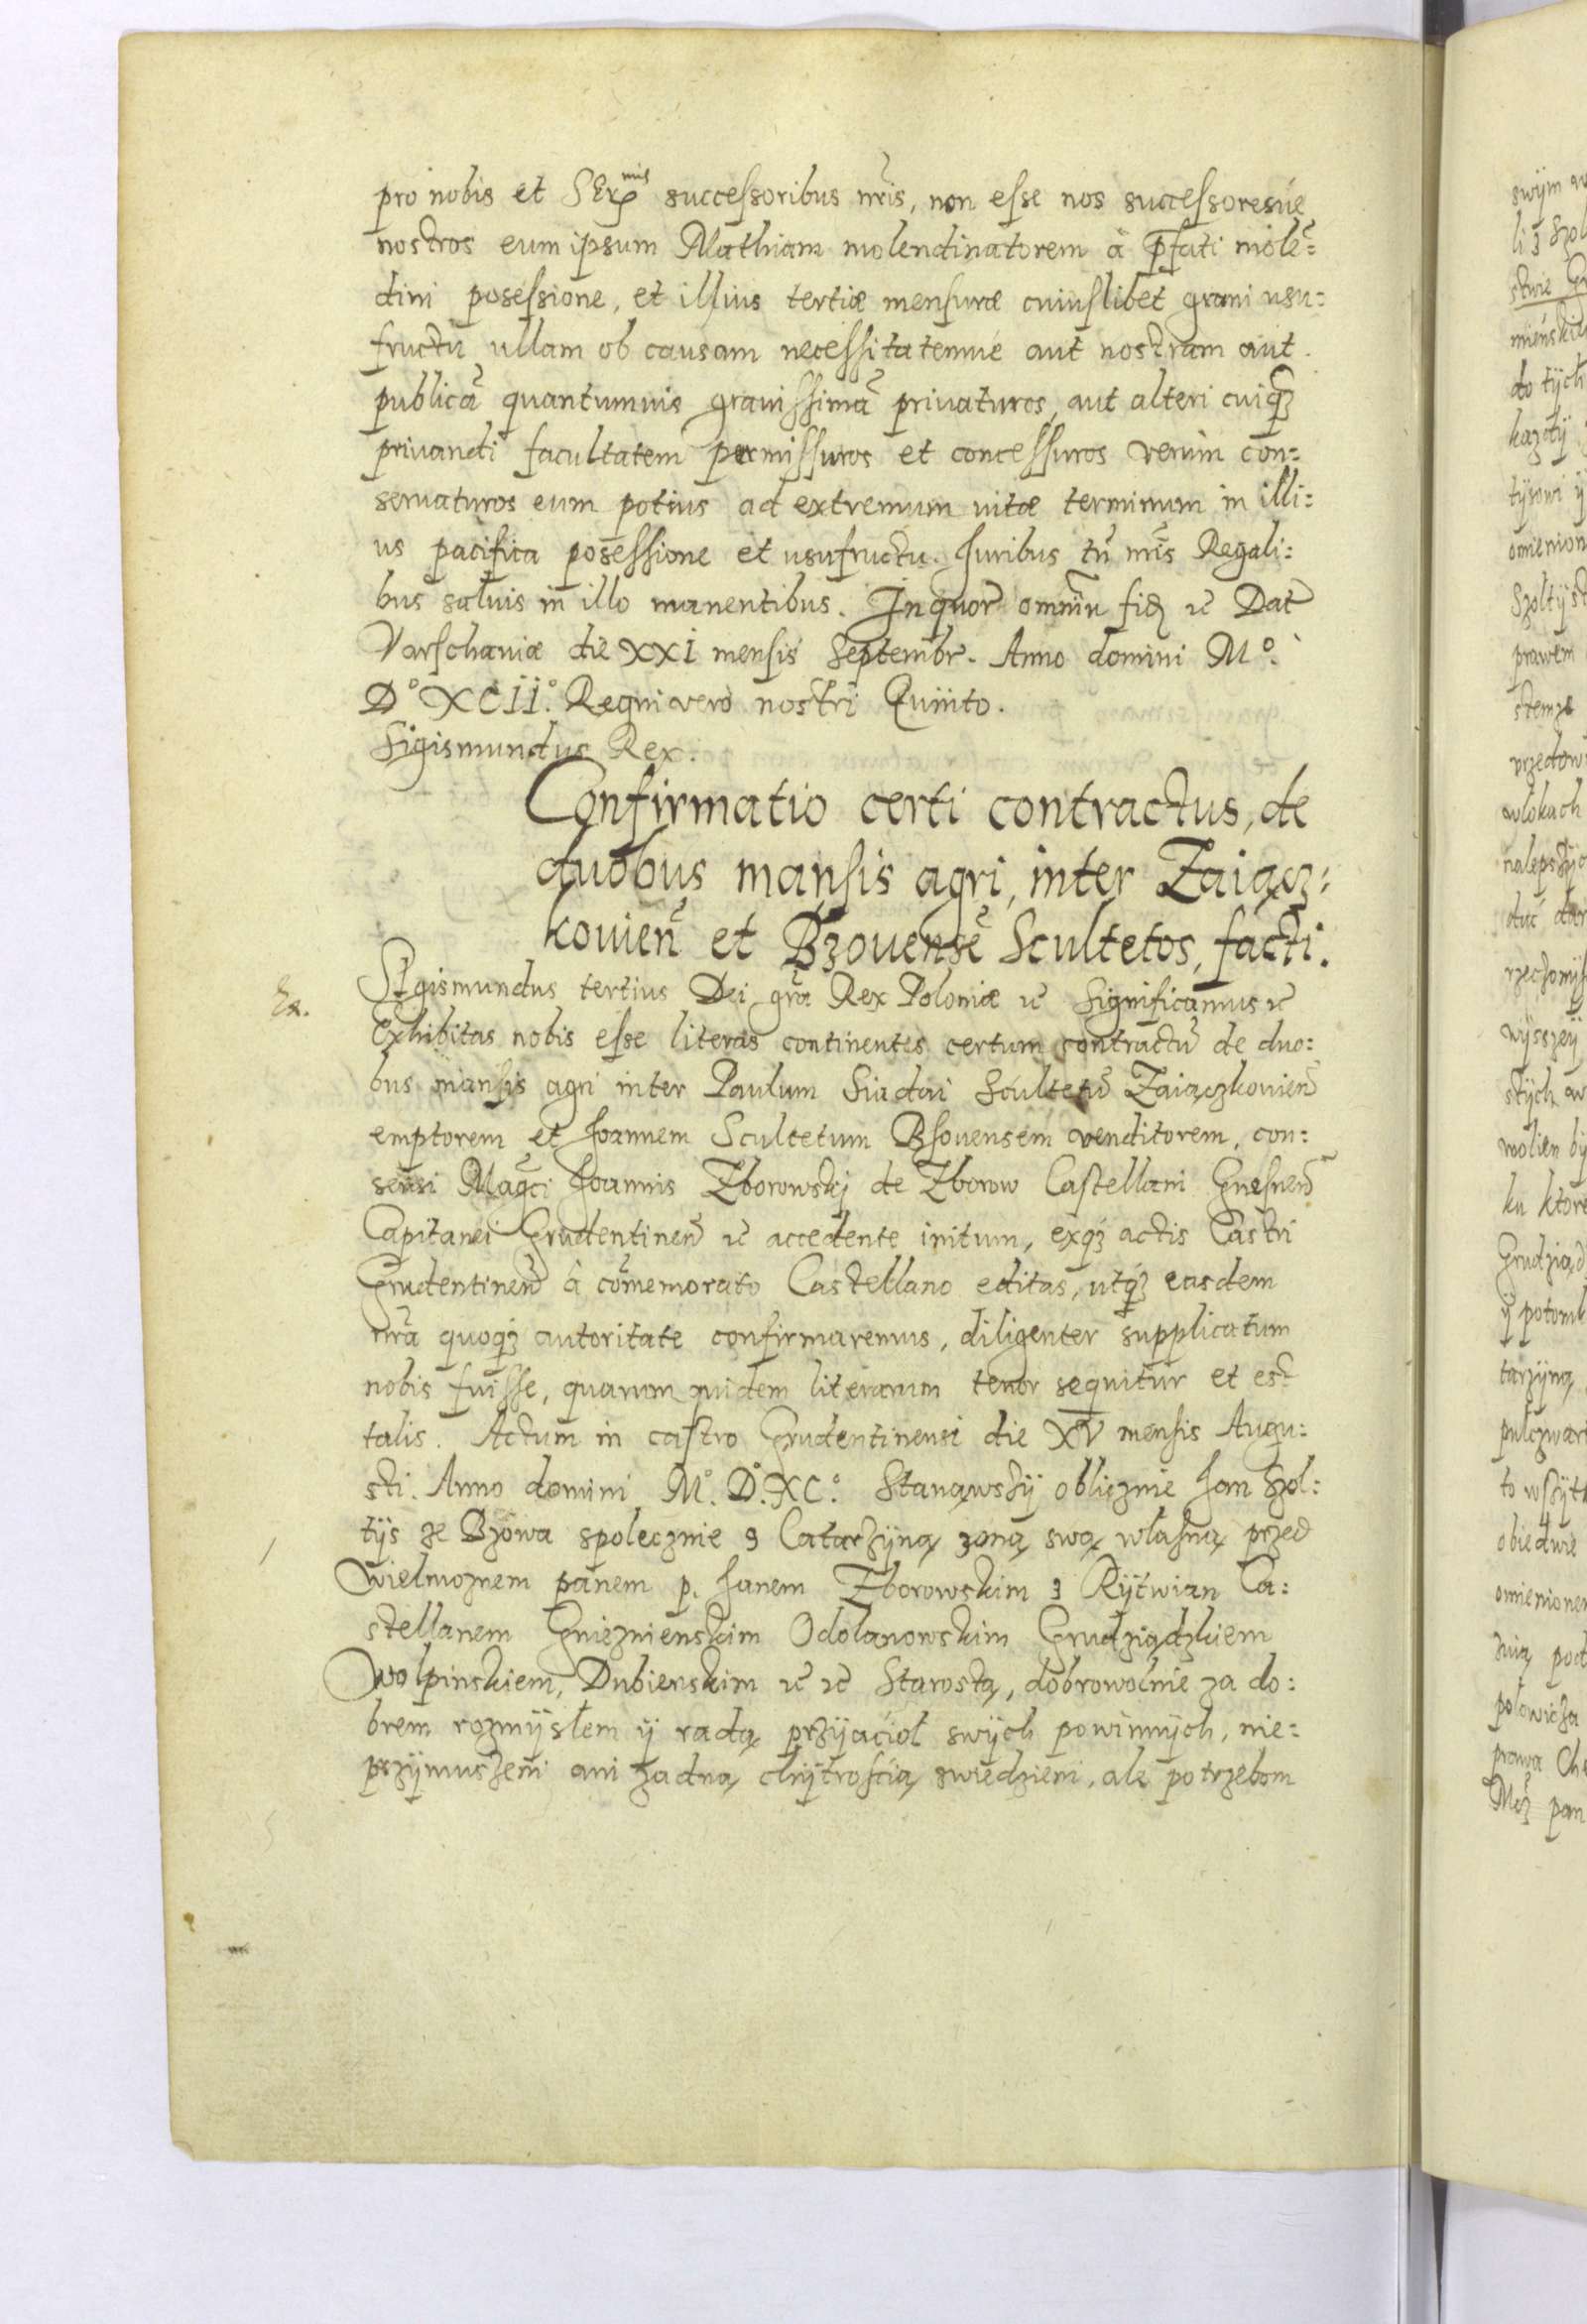 pro nobis et SEre^mis successoribus nr̃is, non esse nos successoresue
nostros eum ipsum Mathiam molendinatorem à p̃fati molẽ=
dini posessione, et illius tertiæ mensuræ cuiuslibet grani usu=
fructu ullam ob causam necessitatemue aut nostram aut
publicã quantumuis grauissimã priuaturos, aut alteri cuiqȝ
priuandi facultatem permissuros et concessuros verum con=
seruaturos eum potius ad extremum uitæ terminum in illi=
us pacifica posessione et usufructu. Juribus tñ nr̃is Regali=
bus saluis in illo manentibus. In quor omniũ fidȝ etc Dat
Varschauiæ die XXI mensis Septembr. Anno domini M°.
D° XCII°. Regni vero nostri Quinto.
Sigismundus Rex.
Confirmatio certi contractus, de
duobus mansis agri, inter Zaiącz=
kouieñ et Bzouensẽ Scultetos, facti.
Ex.
Sigismundus tertius Dei gr̃a Rex Poloniæ etc Significamus etc
Exhibitas nobis esse literas continentes certum contractũ de duo=
bus mansis agri inter Paulum Siadai Scultetũ Zaiączkouieñ
emptorem et Joannem Scultetum Bsouensem venditorem, con=
sensi Mag̃ci Joannis Zborowskj de Zborow Castellani Gnesneñ
Capitanei Grudentineñ etc accedente initum, exqȝ actis Castri
Grudentineñ à cõmemorato Castellano editas, utqȝ easdem
nr̃a quoqȝ autoritate confirmaremus, diligenter supplicatum
nobis fuisse, quarum quidem literarum tenor sequitur et est
talis. Actum in castro Grudentinensi die XV mensis Augu=
sti. Anno domini M°. D°. XC°. Stanąwszÿ oblicznie Jan Szol=
tÿs ze Bzowa spolecznie z Catarzÿną zoną swą własną przed
Wielmoznem panem p. Janem Zborowskim z Rÿtwian Ca=
stellanem Gnieznienskim Odolanowskim Grudziądzkiem
Wolpinskiem, Dubienskim etc etc Starostą, dobrowolnie za do=
brem rozmÿslem ÿ radą przÿaciół swÿch powinnÿch, nie=
przÿmuszeni ani zadną chÿtroscią zwiedzieni, ale potrzebom